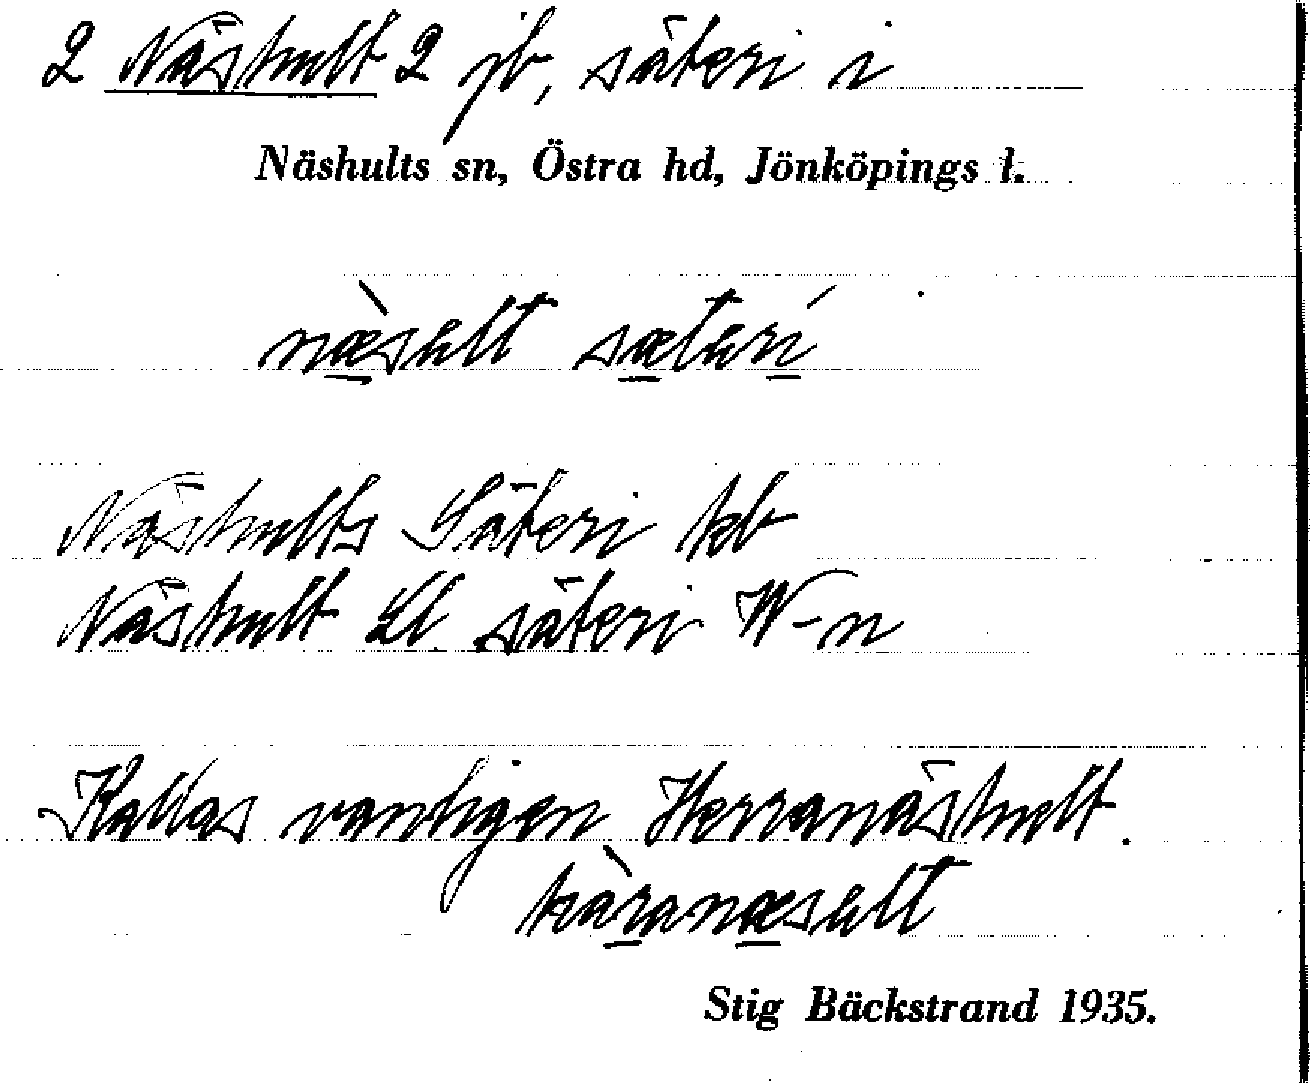 2 Näshult 2 jb, säteri i
Näshults sn, Östra hd, Jönköpings l.
næ̀sult sæterí
Näshults Säteri kb
Näshult Ll. säteri W-n
Kallas vanligen Herranäshult.
hàranæsult
Stig Bäckstrand 1935.